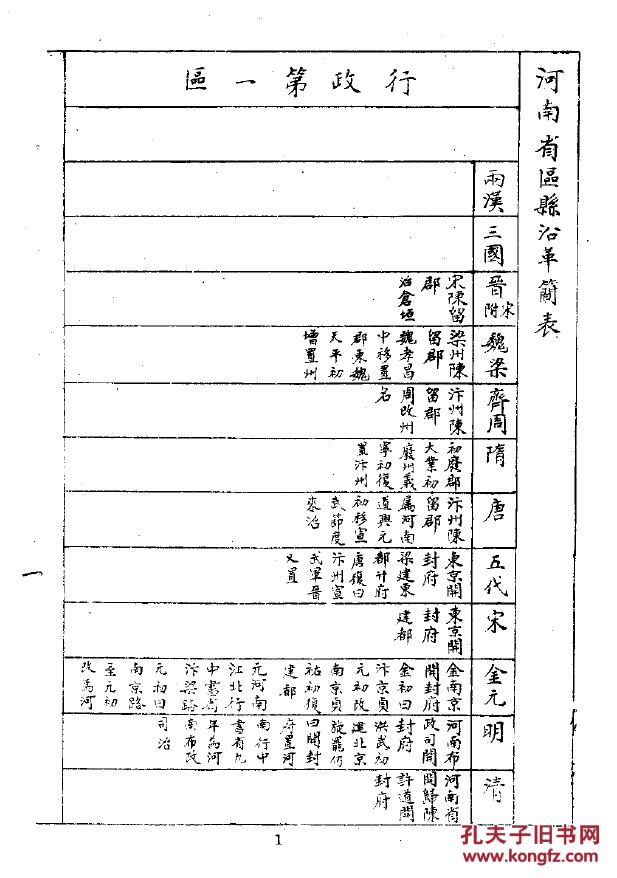 河南省區縣沿革簡表
行政第一區
兩漢
三國
晉宋附
宋陳留
郡
治倉垣
魏梁
梁州陳
留郡
魏孝昌
中移置
郡東魏
天平初
增置州
齊周
汴州陳
留郡
周改州
名
隋
初廢郡
大業初
廢州義
寧初復
置汴州
唐
汴州陳
留郡
屬河南
道興元
初移宣
武節度
來治
五代
東京開
封府
梁建東
都升府
唐復曰
汴州宣
武軍晉
又置
宋
東京開
封府
建都
金元
金南京
開封府
金初曰
汴京貞
元初改
南京貞
祐初復
建都
元河南
江北行
中書省
汴梁路
元初曰
南京路
至元初
改爲河
明
河南布
政司開
封府
洪武初
建北京
旋罷仍
曰開封
府置河
南行中
書省九
年爲河
南布政
司治
清
河南省
開歸陳
許道開
封府
一
1
孔夫子旧书网
www.kongfz.com